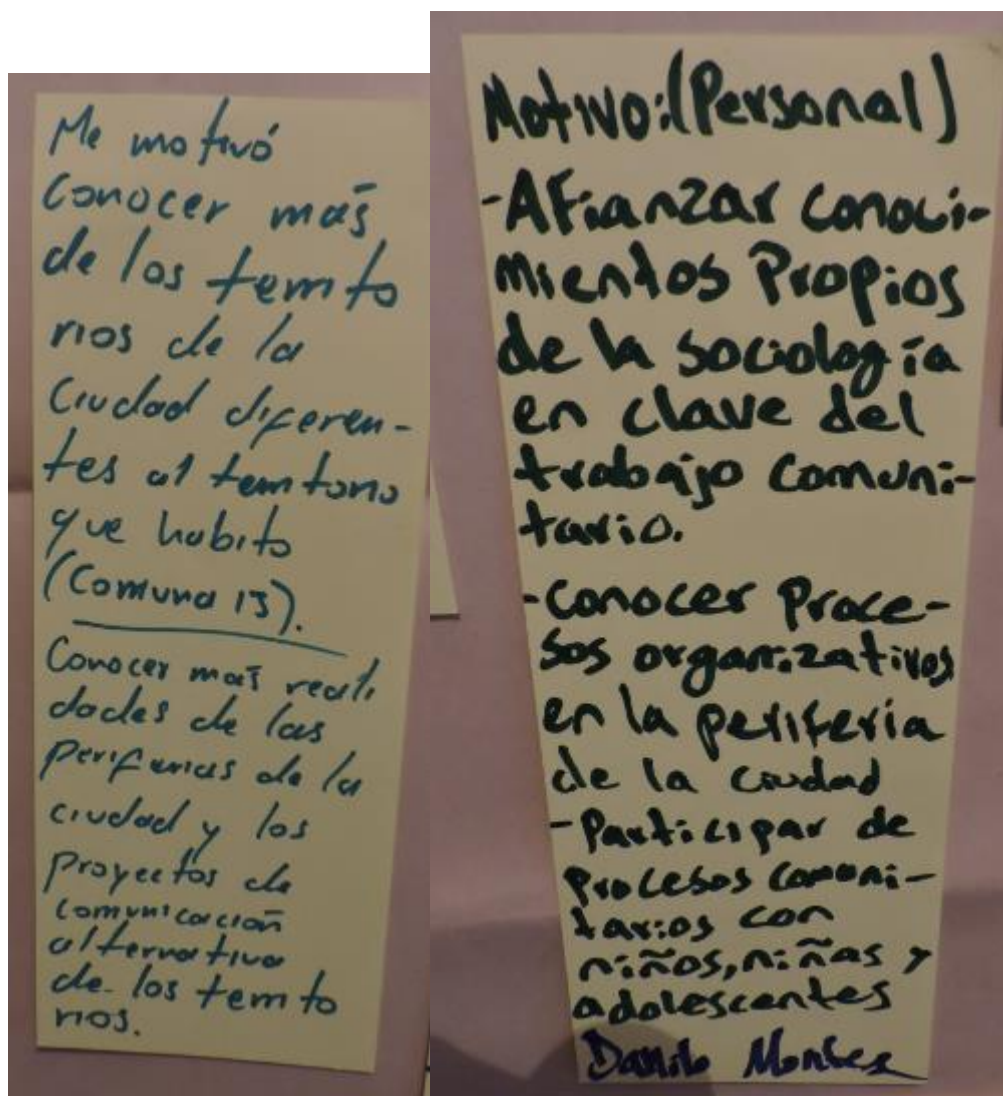 Me motivó
conocer más
de los territo
rios de la
Ciudad diferen-
tes al territorio
que habito
(Comuna 13).
Conocer más reali
dades de las
periferias de la
ciudad y los
proyectos de
comunicación
alternativa
de los territo
rios.
Motivo:(Personal)
-Afianzar conoci-
mientos Propios
de la sociología
en clave del
trabajo comuni-
tario.
-Conocer Proce-
sos organizativos
en la periferia
de la ciudad
-Participar de
procesos comuni-
tarios con
niños, niñas y
adolescentes
Danilo Montes